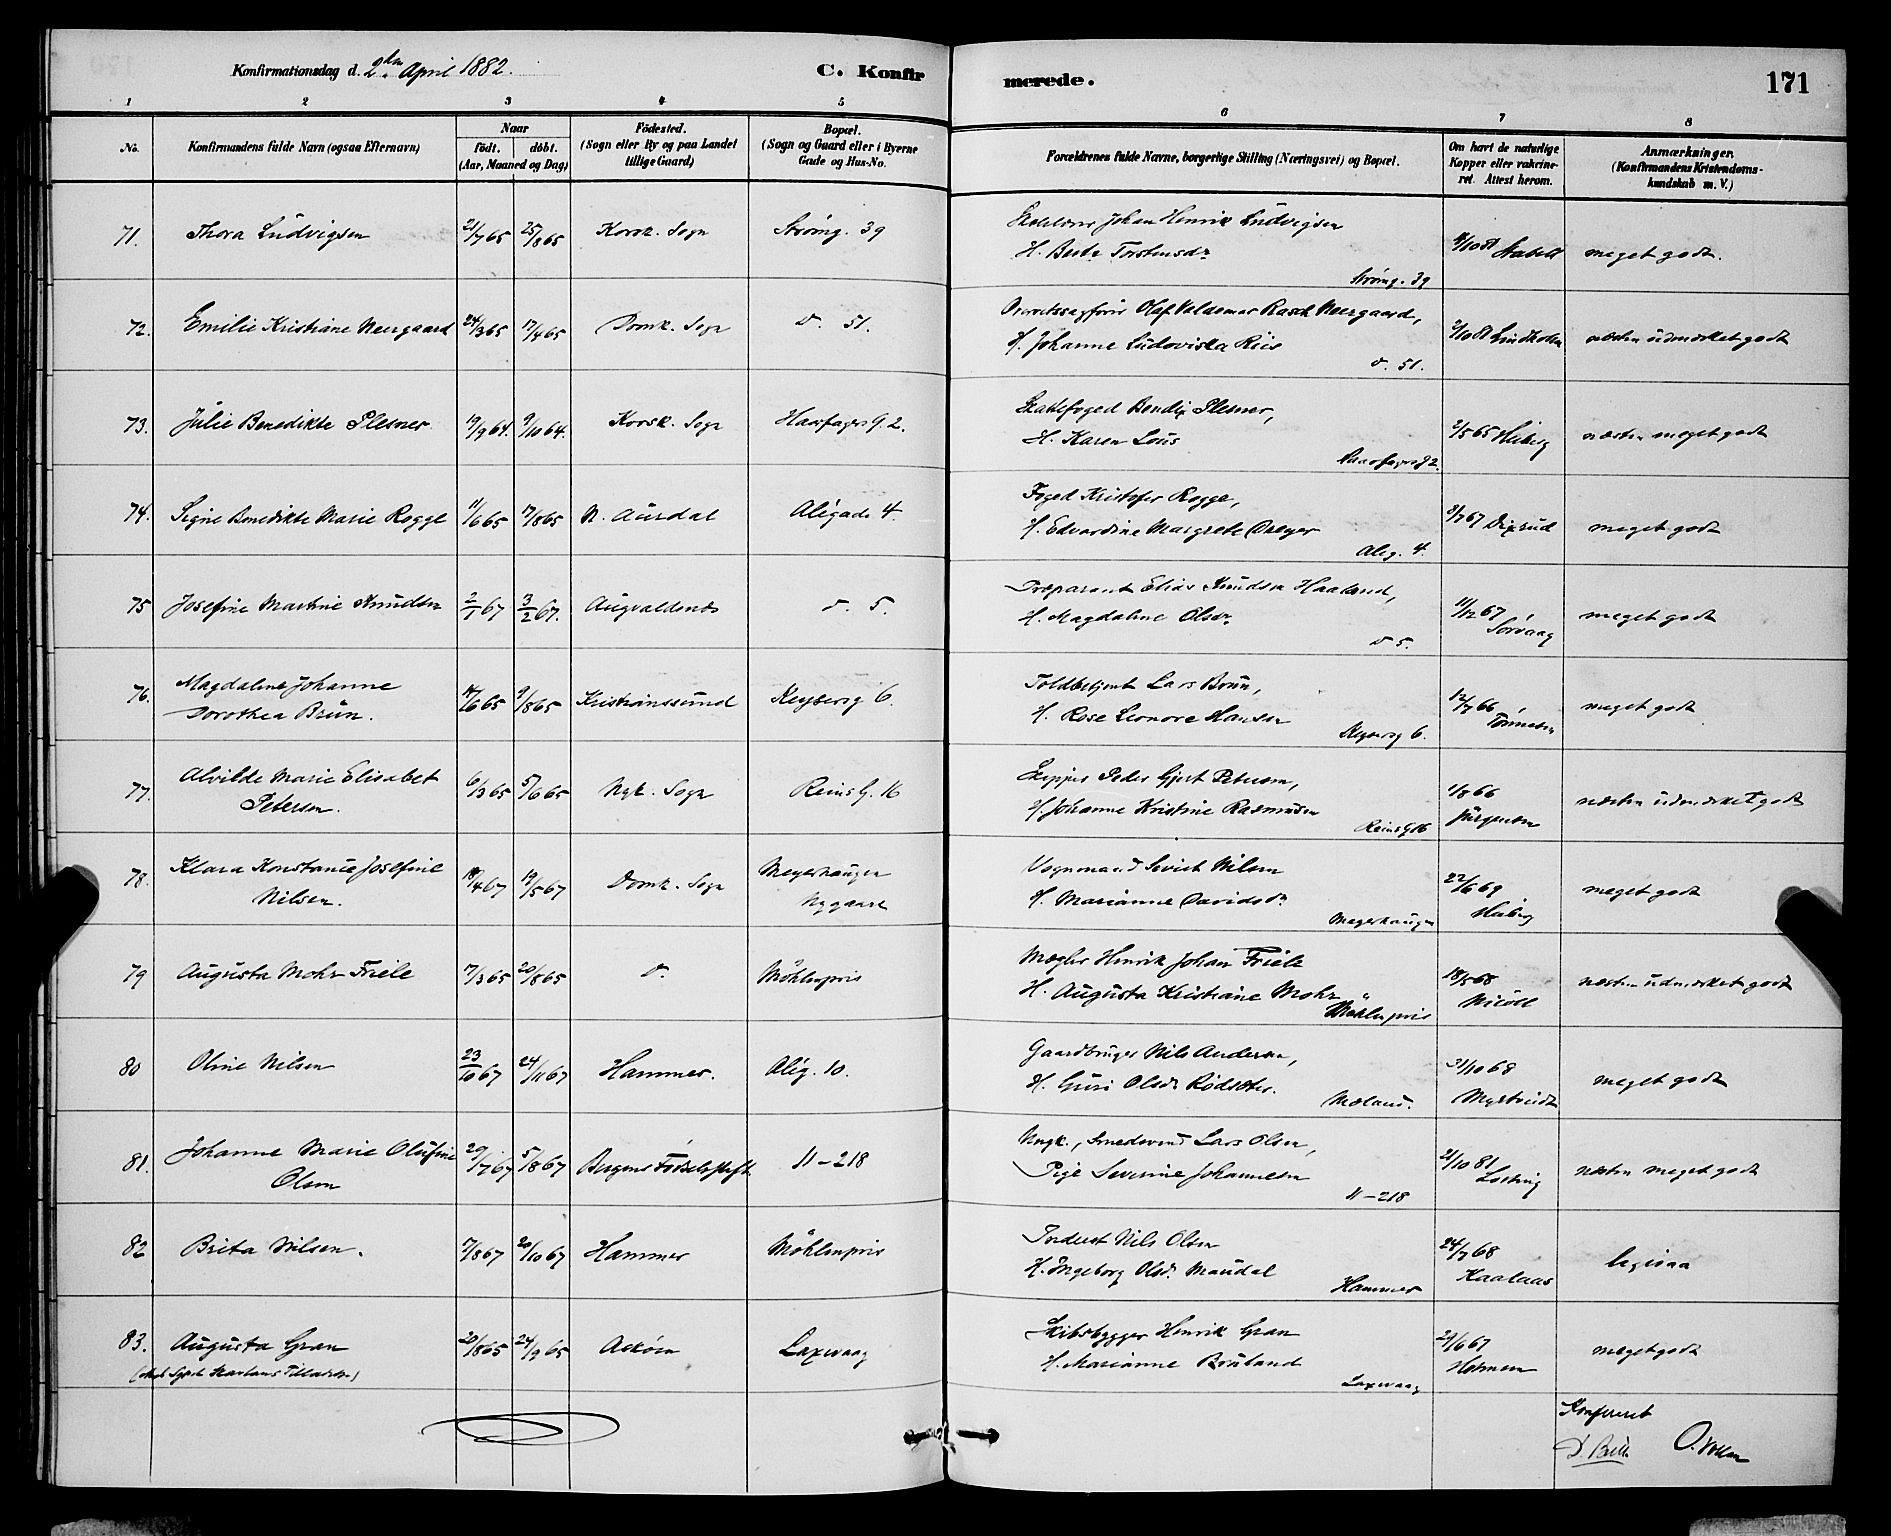 Konfirmationsdag d. 2den April 1882.
C. Konfirmerede.
171
1 2 3 4 5 6 7 8
No. Konfirmandens fulde Navn (ogsaa Efternavn) Naar födt. döbt. (Aar, Maaned og Dag) Födested. (Sogn eller By og paa Landet tillige Gaard) Bopæl. (Sogn og Gaard eller i Byerne Gade og Hus-No. Forældrenes fulde Navne, borgerlige Stilling (Næringsvei) og Bopæl. Om havt de naturlige Kopper eller vakcineret. Attest herom. Anmærkninger. (Konfirmandens Kristendomskundskab m. V.)
71. Thora Ludvigsen 21/7 65 25/8 65 Korsk. Sogn Strömg. 39
Johan Henrik Ludvigsen
H. Berte Torstensdr
Strömg. 39
meget godt.
72. Emilie Kristiane Neergaard 24/3 65 17/4 65 Domk. Sogn d. 51.
Overretssagförer Olaf Valdemar Rasch Neergaard,
H. Johanne Ludovika Riis
d. 51.
Lindholm næsten udmærket godt
73. Julie Benedikte Plesner 19/9 64. 9/10 64. Korsk. Sogn Haarfagersg. 2.
Skattefoged Bendix Plesner,
H. Karen Lous
Haarfagersg 2.
2/5 65 Heiberg næsten meget godt
74. Signe Benedikte Marie Rogge 11/6 65 17/8 65 N. Aurdal Allégade 4.
Foged Kristofer Rogge,
H. Edvardine Margrete Dreyer
Alleg. 4.
3/7 67 Dixrud meget godt
75 Josefine Martine Knudsen 2/1 67 3/2 67. Augvaldsnæs d. 5.
Præparant Elias Knudsen Haaland,
H. Magdaline Olsdr
d 5.
11/12 67 Sörvaag meget godt
76. Magdalene Johanne
Dorothea Brun. 14/6 65 9/8 65 Kristianssund Keysersg 6.
Toldbetjent Lars Brun,
H. Rose Leonore Hansen
Keysersg 6.
12/7 66 Tönnesen meget godt
77. Alvilde Marie Elisabet
Petersen. 6/3 65 5/6 65 Nyk. Sogn Reins G. 16
Skipper Peder Gjert Petersen,
H Johanne Kristine Rasmussen
Reins G 16
1/8 66 Jürgensen næsten udmærket godt
78. Klara Konstance Josefine
Nilsen. 18/4 67 19/5 67 Domk. Sogn Meyerhaugen
Nygaard
Vognmand Sivert Nilsen
H. Marianne Davidsdr
Meyerhaugen
22/6 69 Heiberg meget godt
79 Augusta Mohr Friele 17/3 65 20/8 65 d. Möhlenpris
Mægler Henrik Johan Friele
H. Augusta Kristiane Mohr
Möhlenpris
18/5 68 næsten udmærket godt
80 Oline Nilsen 23/10 67 24/11 67 Hammer. Alleg. 10.
Gaardbruger Nils Andersen,
H. Guri Olsdr Rödseter.
Mæland.
31/10 68 Myrtveidt meget godt
81. Johanne Marie Olufine
Olsen 29/7 67 5/8 67 Bergens Födselsstift. 11-218
Ungk., Smedsvend Lars Olsen,
Pige Severine Johannesen
11-218
21/10 81 Losting næsten meget godt
82 Brita Nilsen. 7/8 67 20/10 67 Hammer Möhlenpris
Nils Olsen
H. Ingeborg Olsdr Maudal
Hammer
24/7 68 Kaalaas ligesaa
83. Augusta Gran 20/8 65 24/9 65 Asköen Laxevaag
Skibsbygger Henrik Gran
H. Marianne Bruland
Laxevaag
21/6 67 Hermann meget godt
Konfereret